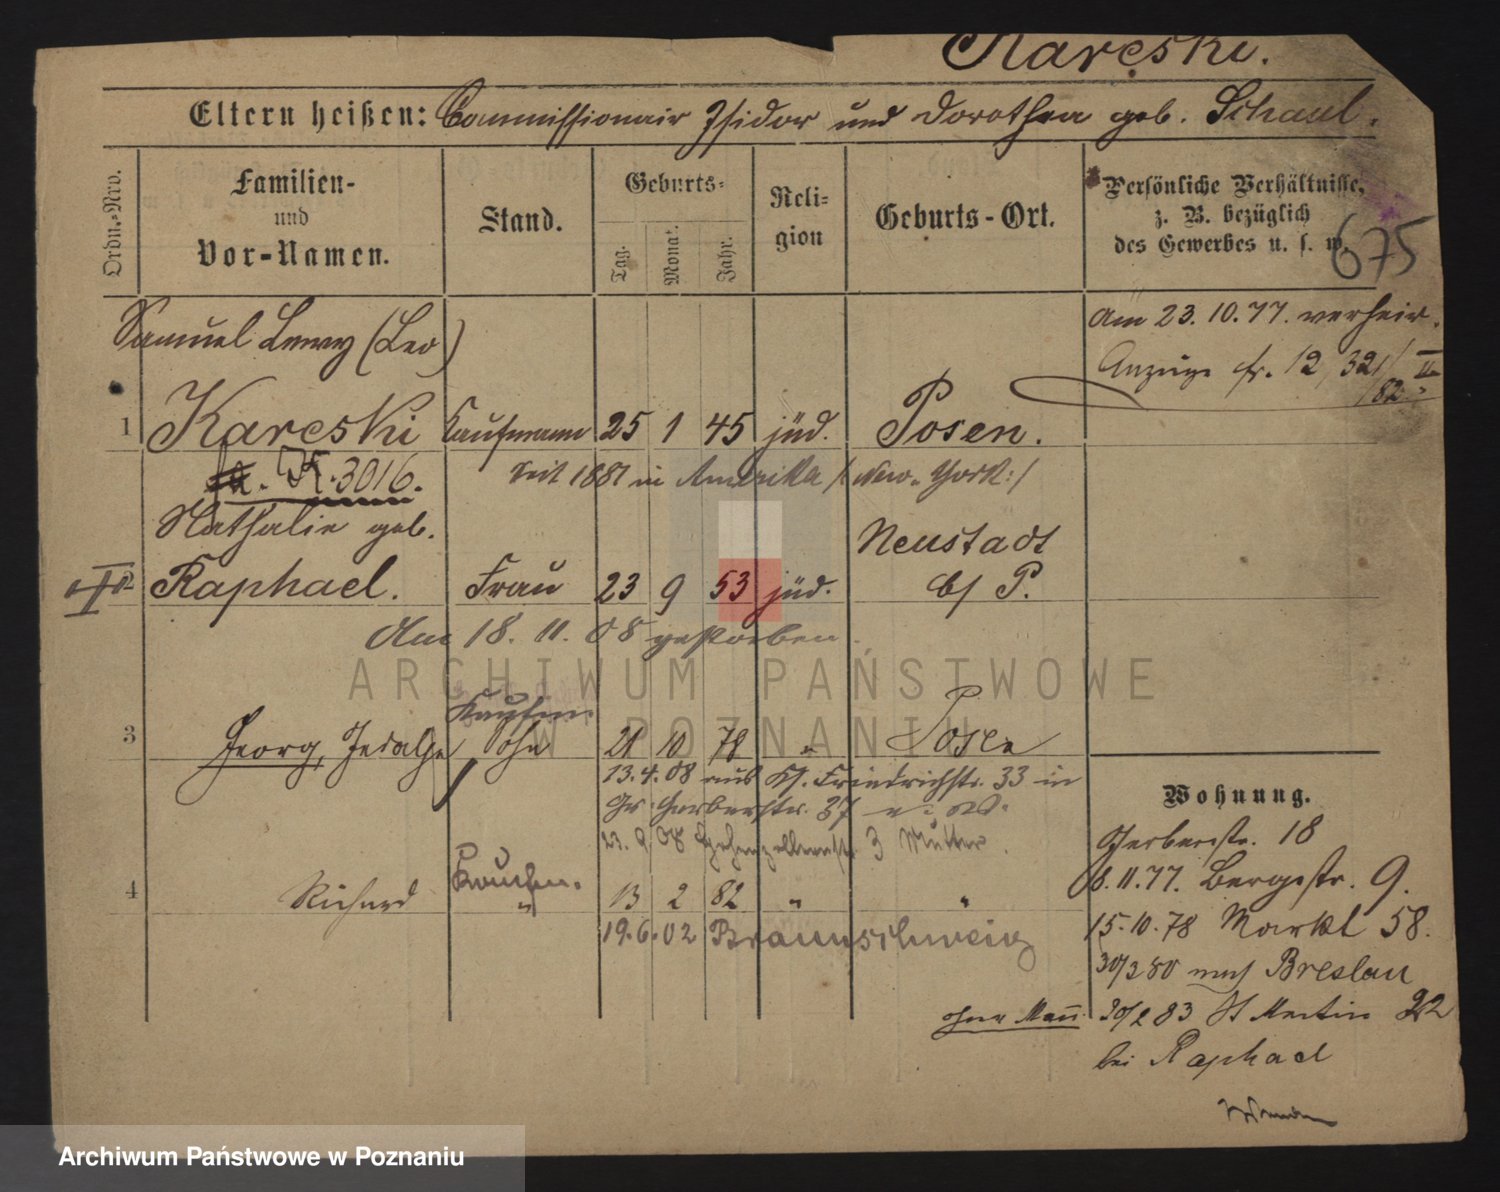 Kareski.
Eltern heißen: Commissionair Isidor und Dorothea geb. Schaul.
Ordn.-Nro.
Familien-
und
Vor-Namen.
Stand.
Geburts-
Tag.
Monat.
Jahr.
Reli-
gion
Geburts-Ort.
Persönliche Verhältnisse,
z. B. bezüglich
des Gewerbes u. s. w.
675
Samuel Lewy (Leo)
Am 23.10.77. verheir.
Anzeige fr. 12/32/II
/82.
1 Kareski Kaufmann 25 1 45 jüd. Posen.
K. 3016.
seit 1881 in Amerika /: New-York :/
Nathalie geb.
Raphael. Frau 23 9 53 jüd. Neustadt
b/ P.
Am 18. 11. 08 gestorben.
ARCHIWUM PAŃSTWOWE
W POZNANIU
Kaufm.
3 Georg, Sohn 21 10 78 " Posen
13.4.08 aus Kl. Friedrichstr. 33 in
Gr. Gerberstr. 37
23. 9. 08 Hohenzollernstr. 3 Mutter.
Kaufm.
4 Richard " 13 2 82 " "
19.6.02 Braunschweig
Wohnung.
Gerberstr. 18
8.11.77. Bergstr. 9.
15.10.78 Markt 58.
30/3 80 nach Breslau
ohne Mann 30/2 83 St Martin 22
bei Raphael
Archiwum Państwowe w Poznaniu